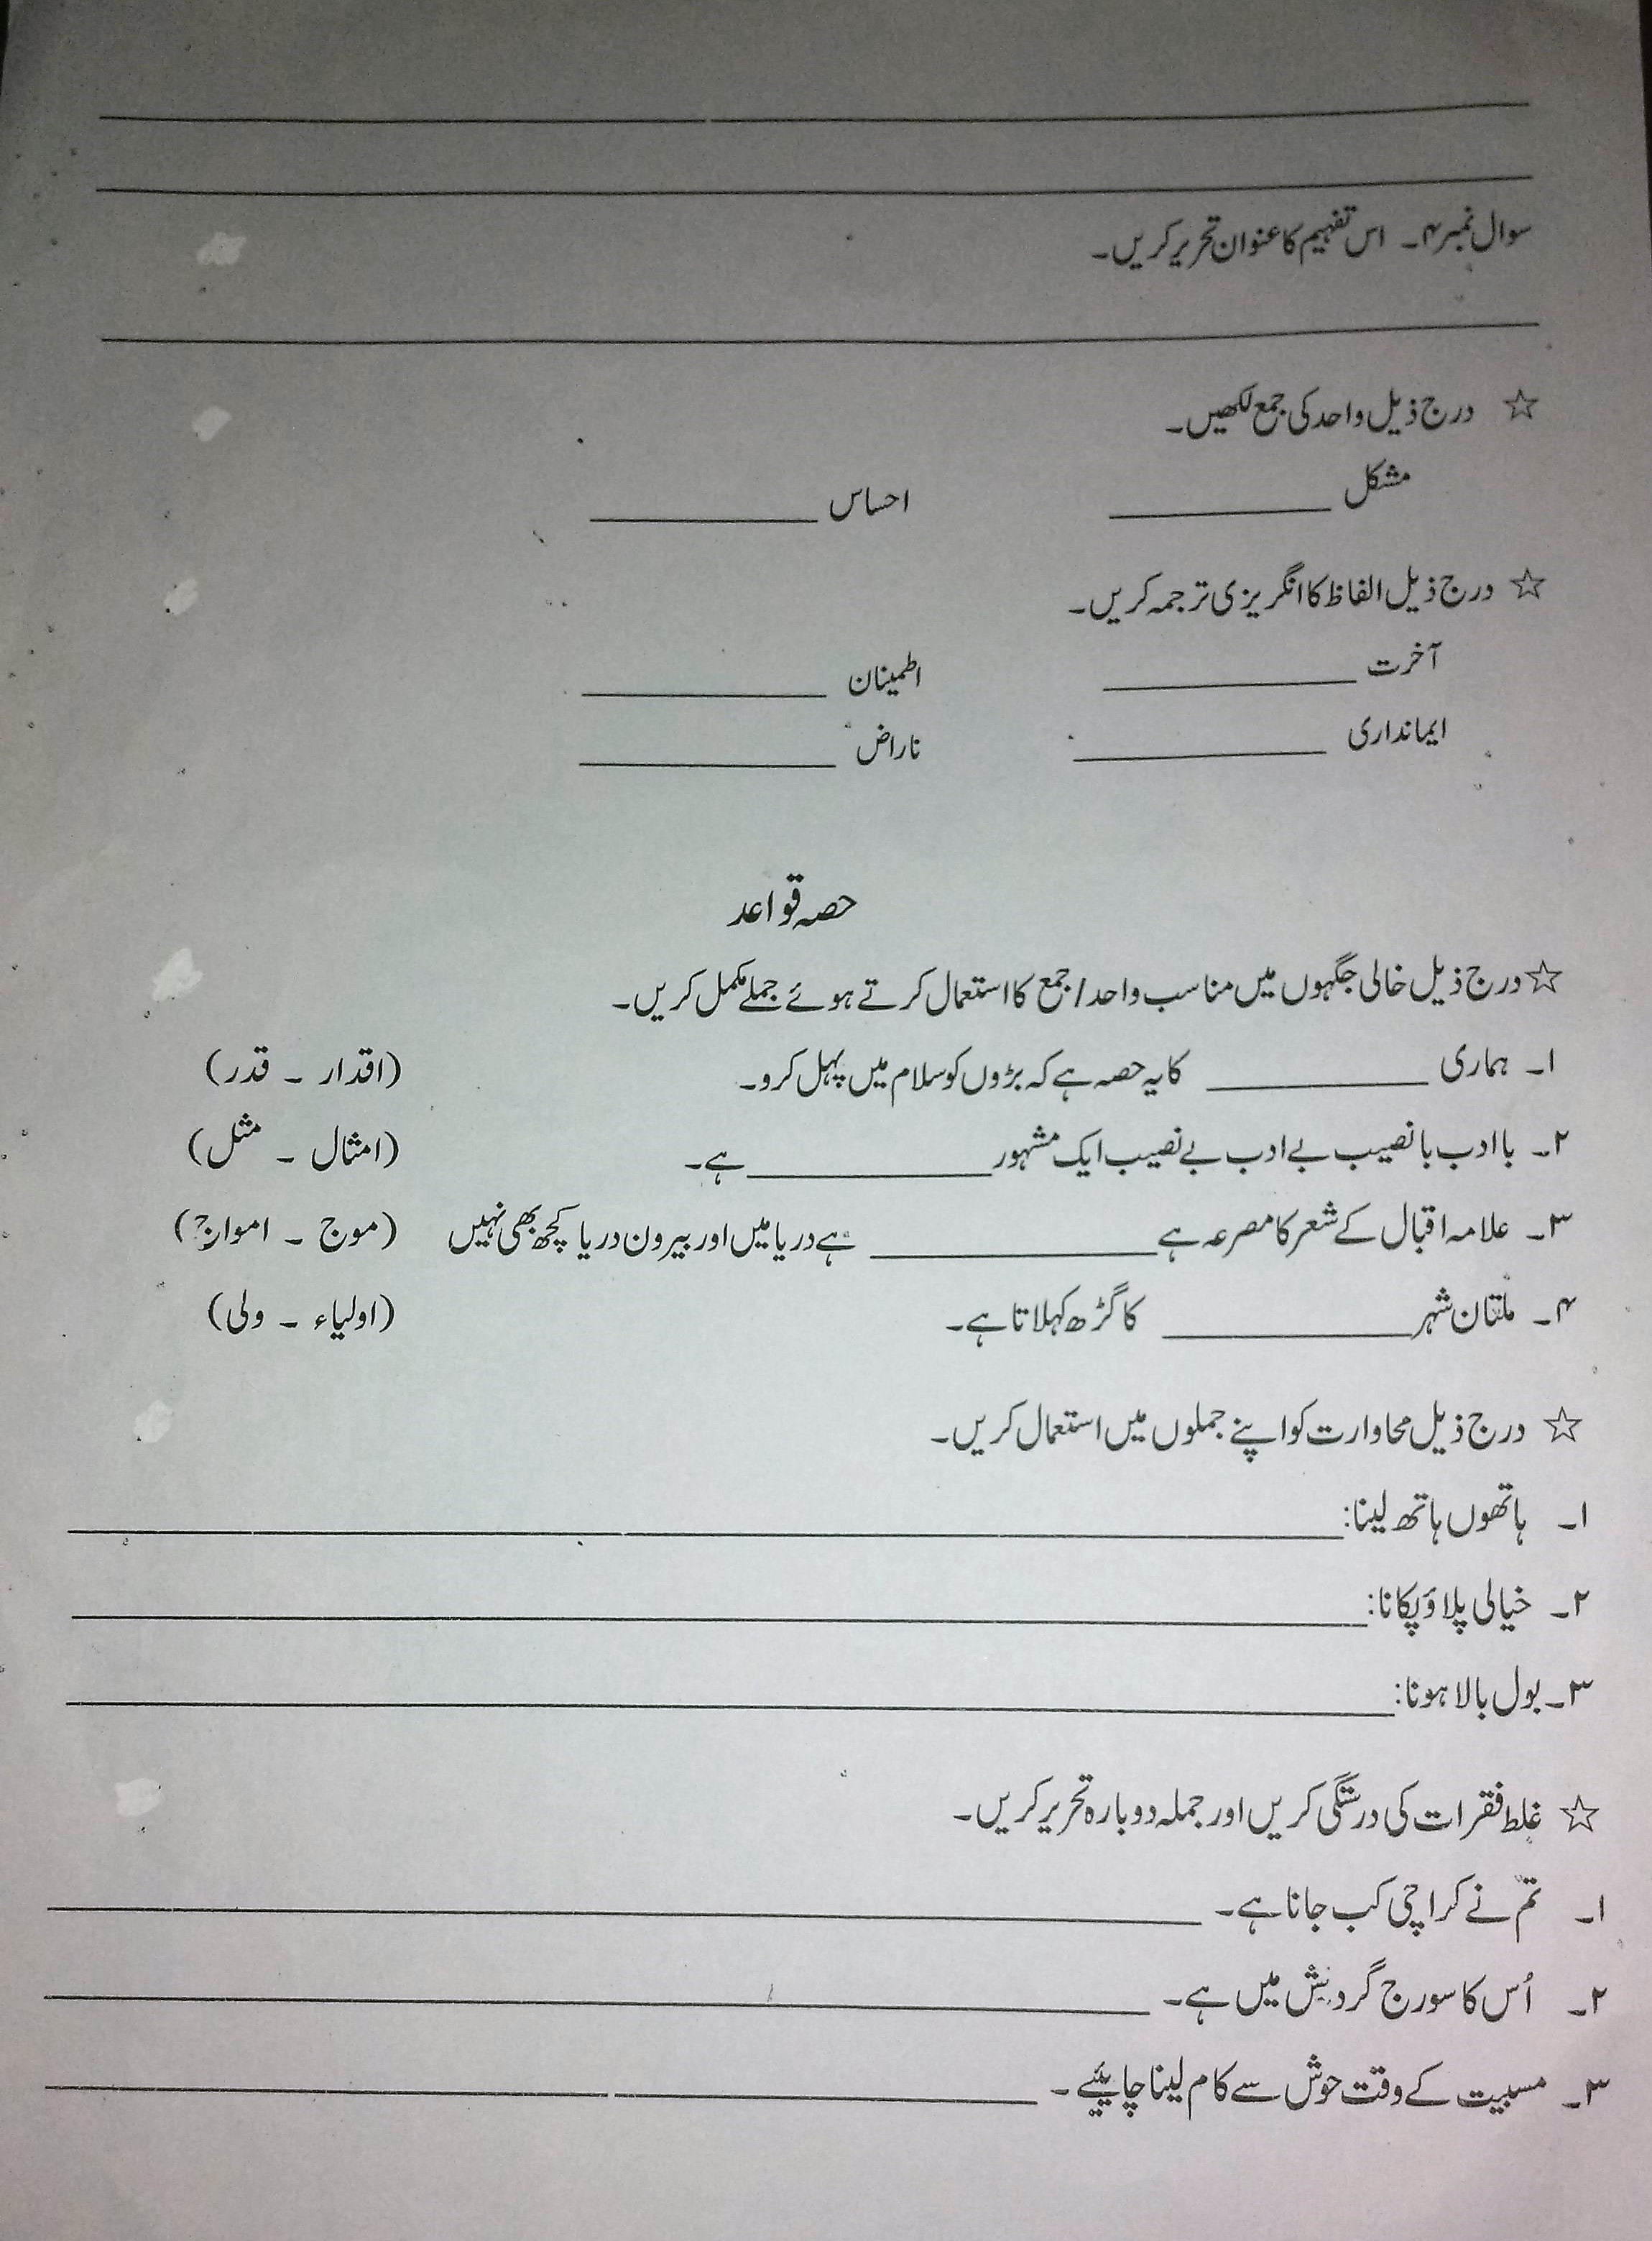 سوال نمبر ۴۔ اس تفہیم کا عنوان تحریر کریں۔
☆ درج ذیل واحد کی جمع لکھیں۔
مشکل ____________ احساس ____________
☆ درج ذیل الفاظ کا انگریزی ترجمہ کریں۔
آخرت ____________ اطمینان ____________
ایمانداری ____________ ناراض ____________
حصہ قواعد
☆ درج ذیل خالی جگہوں میں مناسب واحد/جمع کا استعمال کرتے ہوئے جملے مکمل کریں۔
۱۔ ہماری ____________ کا یہ حصہ ہے کہ بڑوں کو سلام میں پہل کرو۔ (اقدار ۔ قدر)
۲۔ با ادب با نصیب بے ادب بے نصیب ایک مشہور ____________ ہے۔ (امثال ۔ مثل)
۳۔ علامہ اقبال کے شعر کا مصرعہ ہے ____________ ہے دریا میں اور بیرون دریا کچھ بھی نہیں (موج ۔ امواج)
۴۔ ملتان شہر ____________ کا گڑھ کہلاتا ہے۔ (اولیاء ۔ ولی)
☆ درج ذیل محاوارت کو اپنے جملوں میں استعمال کریں۔
۱۔ ہاتھوں ہاتھ لینا: ____________
۲۔ خیالی پلاؤ پکانا: ____________
۳۔ بول بالا ہونا: ____________
☆ غلط فقرات کی درستگی کریں اور جملہ دوبارہ تحریر کریں۔
۱۔ تم نے کراچی کب جانا ہے۔ ____________
۲۔ اُس کا سورج گردیش میں ہے۔ ____________
۳۔ مسبیت کے وقت حوش سے کام لینا چاہیئے۔ ____________